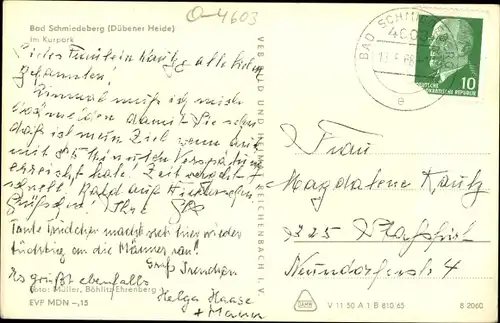 O-4603
Bad Schmiedeberg (Dübener Heide)
Im Kurpark
Liebes Fräulein Kautz & alle lieben
Bekannten!
Einmal muß ich mich
melden damit Sie
daß ich mein Ziel wenn auch
mit 85 Minuten Verspätung
erreicht habe! Zeit vergeht
schnell! Bald auf Wiedersehen
Grüßchen! Ihre
Tante Trudchen macht sich hier wieder
tüchtig an die Männer ran!
Gruß Trudchen
Es grüßt ebenfalls
Helga Haase
+ Mann
Foto: Müller, Böhlitz-Ehrenberg
EVP MDN -,15
VEB BILD UND HEIMAT REICHENBACH I. V.
BAD SCHMIEDEBERG
e
10
DEUTSCHE
DEMOKRATISCHE REPUBLIK
Frau
Magdalene Kautz
325 Staßfurt
Neundorferstr. 4
V 11 50 A 1 B 810/65
8-2060